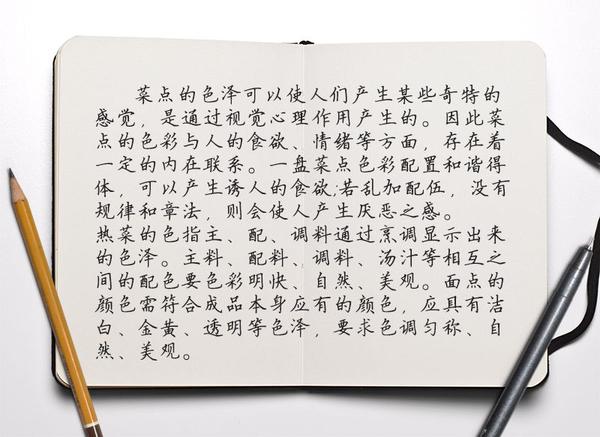 菜点的色泽可以使人们产生某些奇特的
感觉，是通过视觉心理作用产生的。因此菜
点的色彩与人的食欲、情绪等方面，存在着
一定的内在联系。一盘菜点色彩配置和谐得
体，可以产生诱人的食欲;若乱加配伍，没有
规律和章法，则会使人产生厌恶之感。
热菜的色指主、配、调料通过烹调显示出来
的色泽。主料、配料、调料、汤汁等相互之
间的配色要色彩明快、自然、美观。面点的
颜色需符合成品本身应有的颜色，应具有洁
白、金黄、透明等色泽，要求色调匀称、自
然、美观。